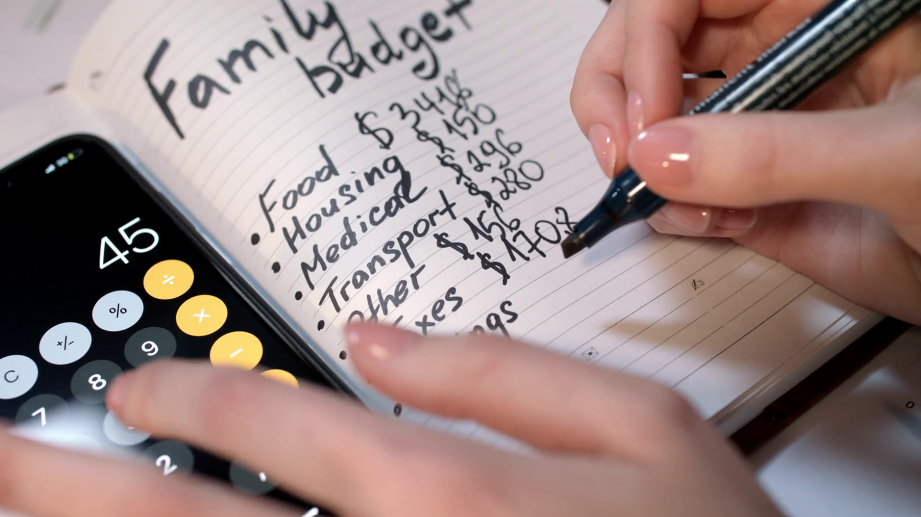 Family
budget
• Food $3418
• Housing $150
• Medical $296
• Transport $280
• Other $156
xes
ngs
45
C +/- % ÷
7 8 9 ×
−
2